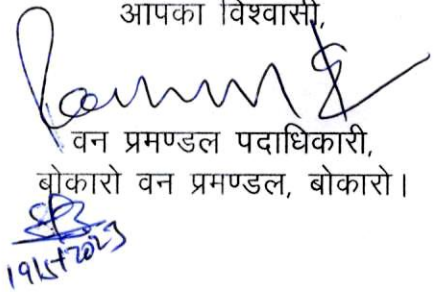 आपका विश्वासी,
वन प्रमण्डल पदाधिकारी,
बोकारो वन प्रमण्डल, बोकारो।